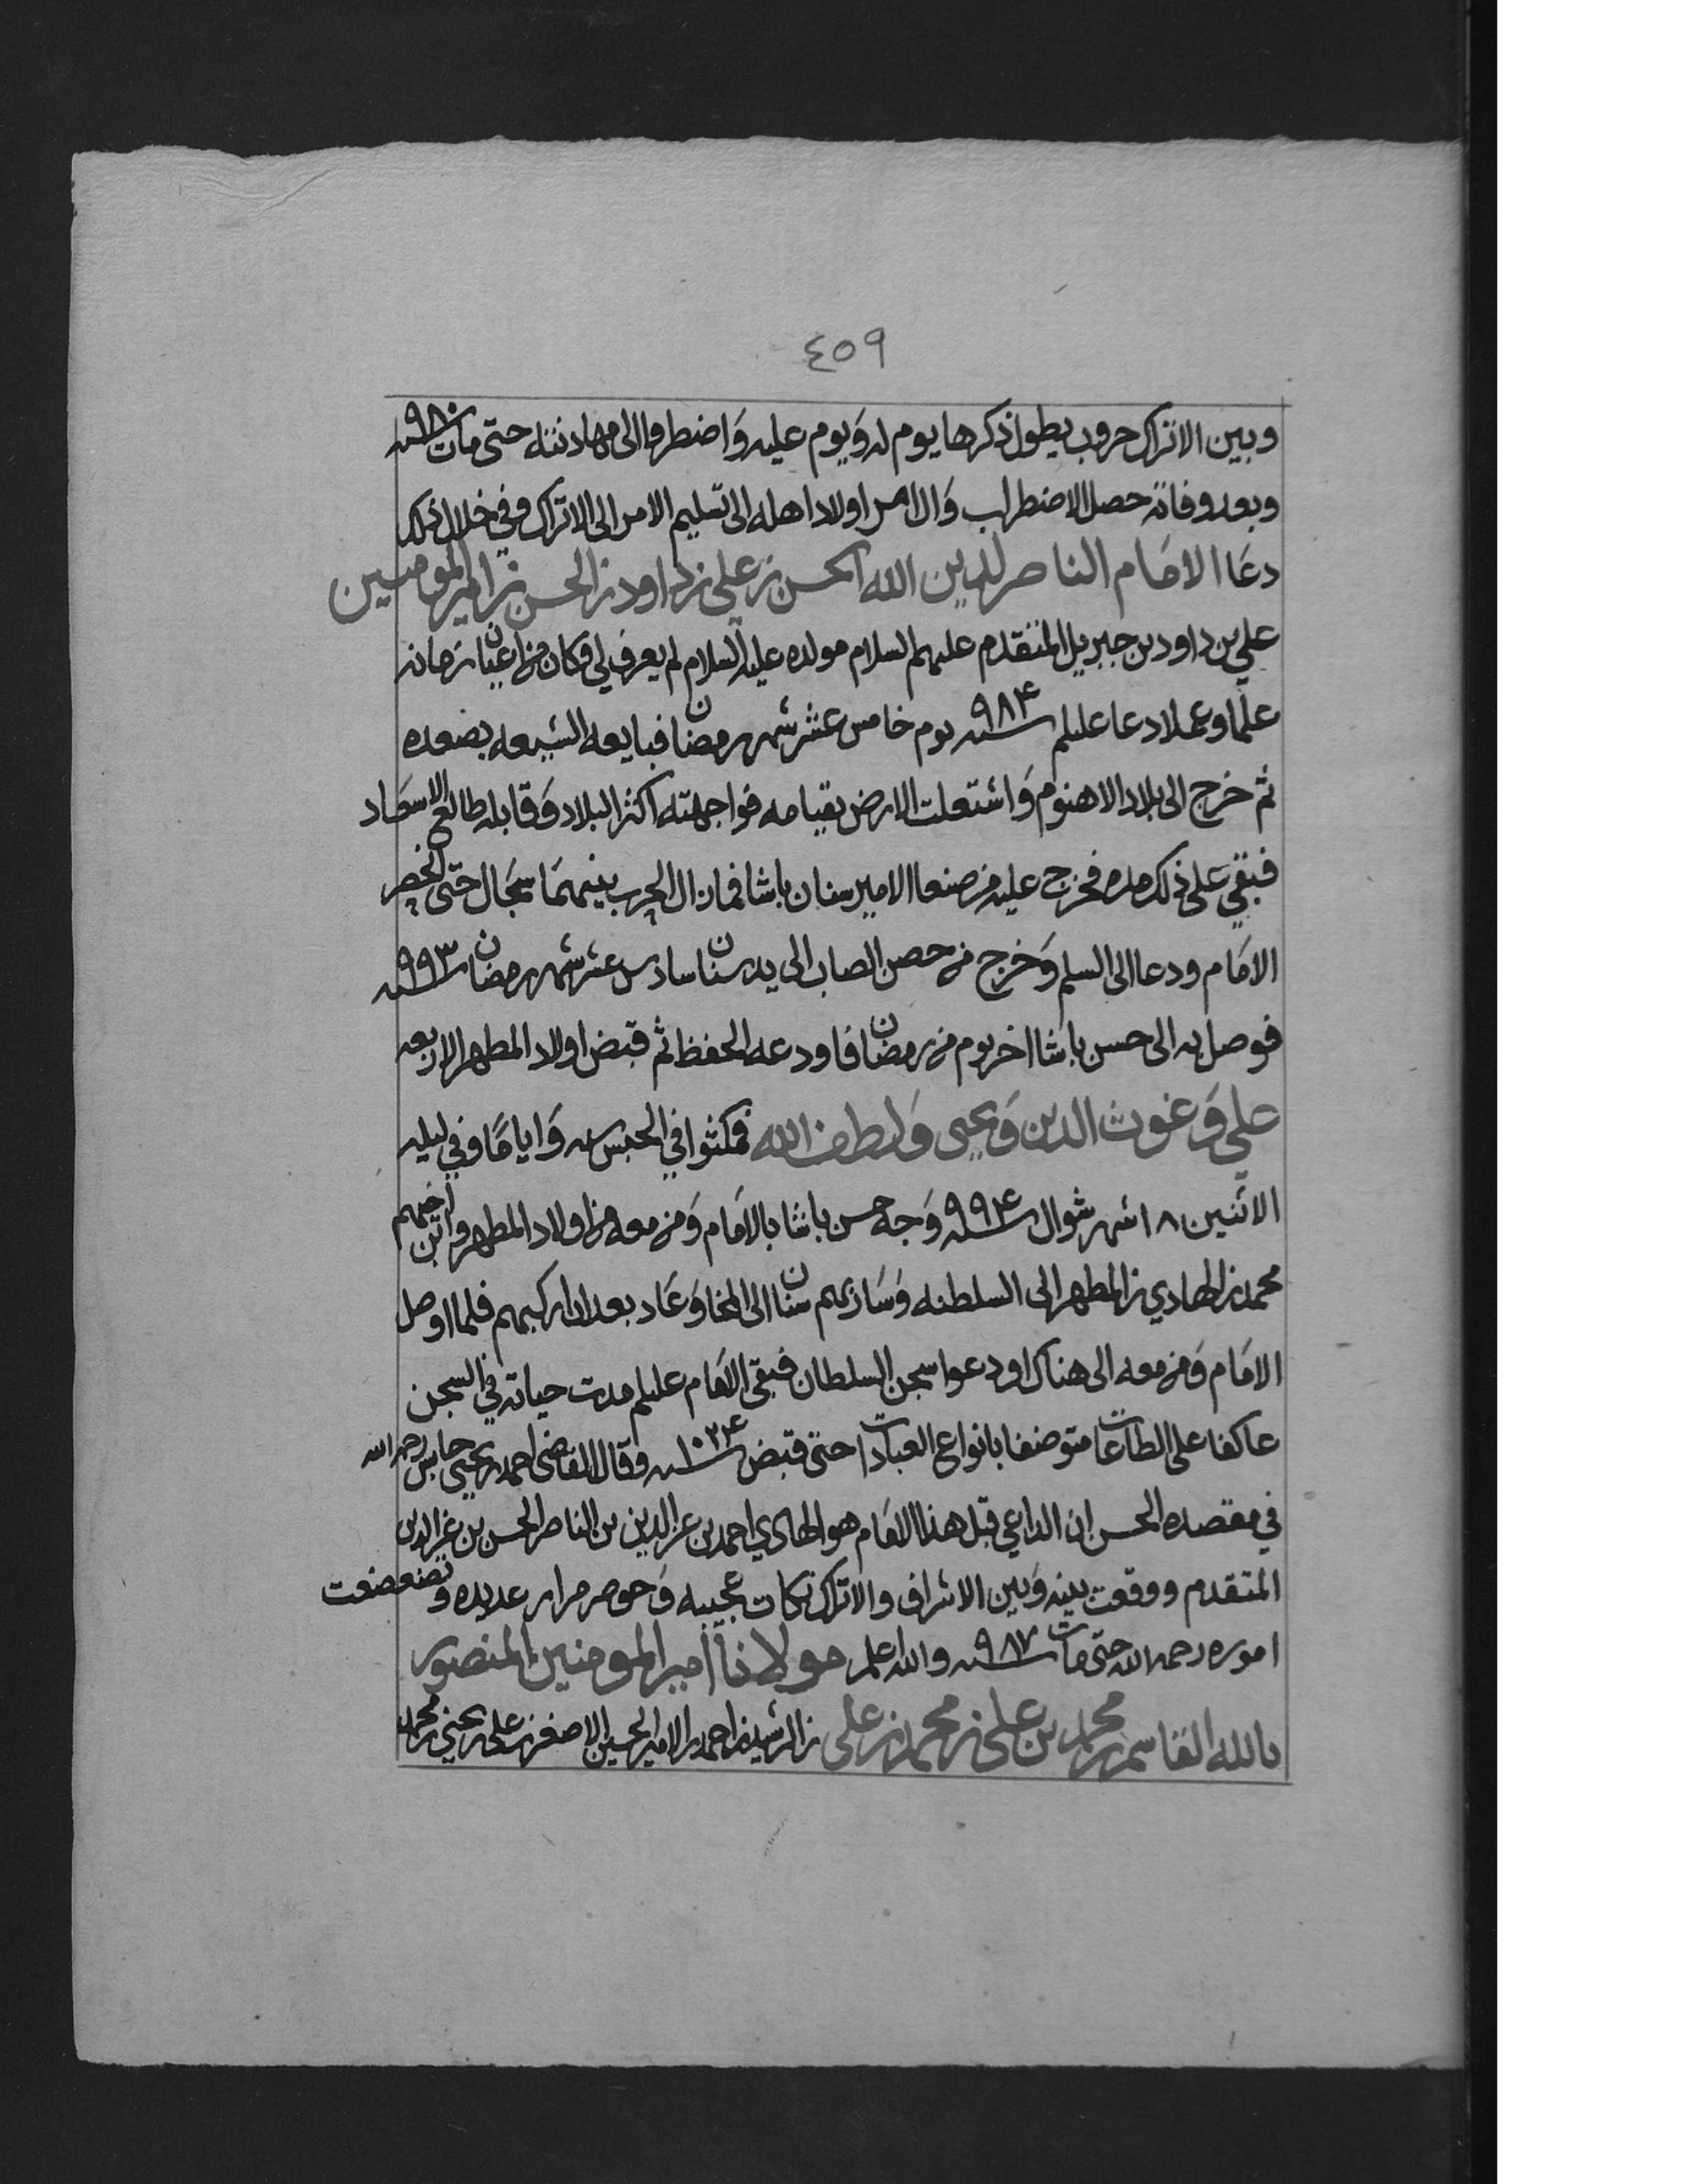 ٤٥٩
وبين الاتراك حروب يطول ذكرها يوم له وَيوم عليه وَاضطروا الى مهادنته حتى مات سنه ٩٨٠
وبعد وفاته حصل الاضطراب وَال امر اولاد اهله الى تسليم الامر الى الاتراك وفي خلال ذلك
دعَا الامَام الناصر لدين الله الحسن بن علي بن داود بن الحسن بن امير المومنين
علي بن داود بن جبريل المتقدم عليهم السلام مولده عليه السلام لم يعرف لي وكان من اعيان زمانه
علما وعملا دعا عليلم سنه ٩٨٤ يوم خامس عشر شهر رمضان فبايعه الشيعه بصعده
ثم خرج الى بلاد الاهنوم وَاشتعلت الارض بقيامه فواجهته اكثر البلاد وَقابله طالع الاسعَاد
فبقي على ذلك مده فخرج عليه من صنعا الامير سنان باشا فما زال الحرب بينهمَا سجَال حتى انحصر
الامَام ودعا الى السلم وَخرج من حصن الصاب الى يد سنان سادس عشر شهر رمضان سنه ٩٩٣
فوصل به الى حسن باشا اخر يوم من رمضان فاودعه الحفظ ثم قبض اولاد المطهر الاربعه
علي وَغوث الدين وَيحيى وَلطف الله فمكثوا في الحبس سنه وَاياماً وفي ليله
الاثنين ١٨ شهر شوال سنه ٩٩٤ وَجه حسن باشا بالامَام وَمن معه من اولاد المطهر وابن اخيهم
محمد بن الهادي بن المطهر الى السلطنه وَسَار بهم سنان الى المخا وَعَاد بعد ان اركبهم فلما اوصل
الامَام وَمن معه الى هناك اودعوا سجن السلطان فبقى الامَام عليلم مدت حياته في السجن
عاكفا على الطاعات متوضفا بانواع العبادات حتى قبض سنه ١٠٢٤ وقال القاضى احمد بن يحيى حابس رحمه الله
في مقصده الحسن ان الداعي قبل هذا الامَام هو الهادي احمد بن عز الدين بن الناصر الحسن بن عز الدين
المتقدم ووقعت بينه وَبين الاشراف والاتراك نكات عجيبه وَحوصر مرار عديده وتضعضعت
اموره رحمه الله حتى مات سنه ٩٨٧ والله اعلم مولانا امير المومنين المنصور
بالله القاسم بن محمد بن علي بن محمد بن علي بن الرشيد بن احمد بن الامير الحسين الاصغر بن علي بن يحيى بن محمد